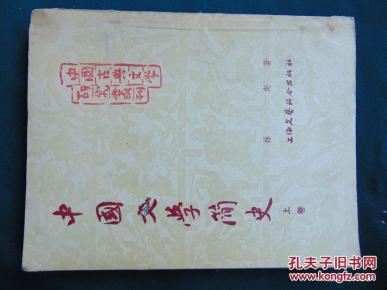 中國古典文学
研究叢刊
林庚 著
上海文藝联合出版社
中國文学简史 上卷
孔夫子旧书网